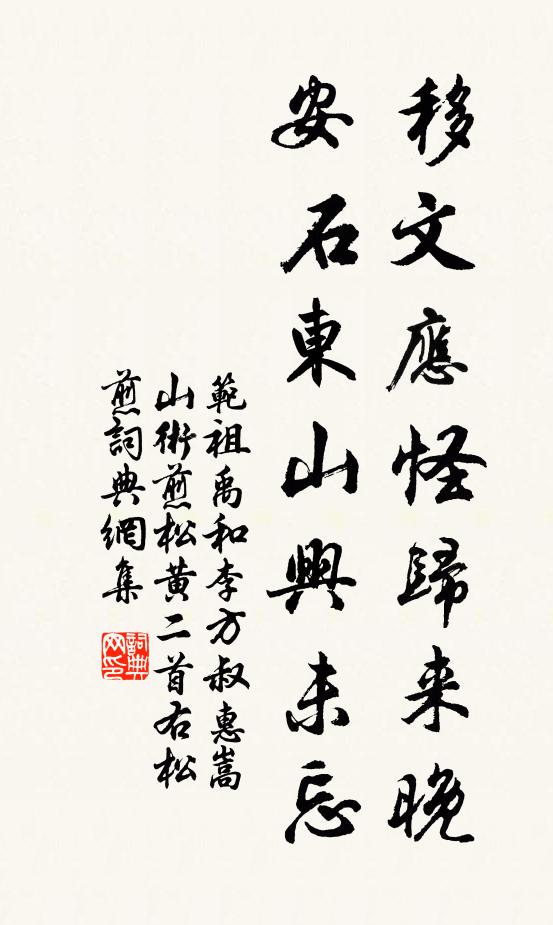 移文應怪歸来晚
安石東山興未忘
範祖禹和李方叔惠嵩
山術煎松黄二首右松
煎詞典網集
詞典网印